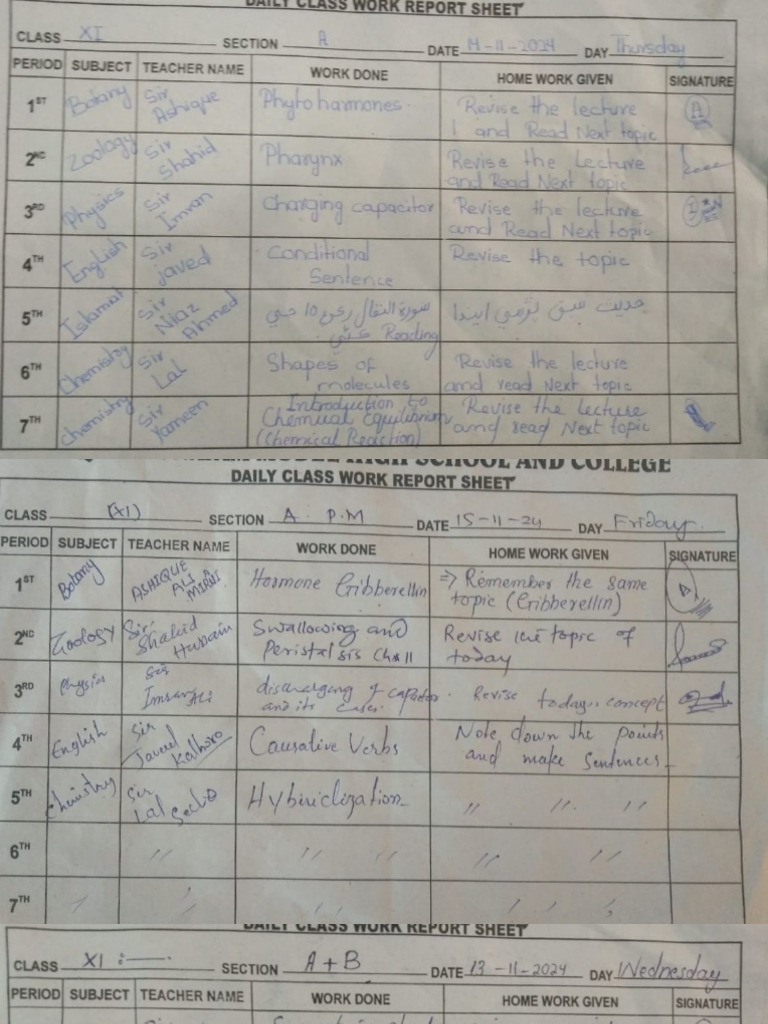 DAILY CLASS WORK REPORT SHEET
CLASS XI SECTION A DATE 14-11-2024 DAY Thursday
PERIOD SUBJECT TEACHER NAME WORK DONE HOME WORK GIVEN SIGNATURE
1ST Botany Sir Ashique Phytohormones. Revise the lecture
1 and Read Next topic
2ND Zoology Sir Shahid Pharynx Revise the Lecture
and Read Next topic
3RD Physics Sir Imran Charging capacitor Revise the lecture
and Read Next topic
4TH English Sir javed Conditional Revise the topic
Sentence
5TH Islamiat Sir Niaz Ahmed 10 جي حديث سبق
Reading
6TH Chemistry Sir Lal Shapes of Revise the lecture
molecules and read Next topic
7TH chemistry Sir Yameen Introduction to Revise the lecture
Chemical Equilibrium and read Next topic
(Chemical Reaction)
MODEL HIGH SCHOOL AND COLLEGE
DAILY CLASS WORK REPORT SHEET
CLASS (XI) SECTION A P.M DATE 15-11-24 DAY Friday
PERIOD SUBJECT TEACHER NAME WORK DONE HOME WORK GIVEN SIGNATURE
1ST Botany ASHIQUE ALI Hormone Gibberellin => Remember the same
topic (Gibberellin)
2ND Zoology Sir Shahid Hussain Swallowing and Revise the topic of
Peristalsis today
3RD Physics Sir Imran Ali discharging of capacitor. Revise today,s concept
and its
4TH English Sir Javed Kalhoro Causative Verbs Note down the points
and make Sentences
5TH Chemistry Sir Lal Hybiridization " " "
6TH " " " " "
7TH
DAILY CLASS WORK REPORT SHEET
CLASS XI :— SECTION A+B DATE 13-11-2024 DAY Wednesday
PERIOD SUBJECT TEACHER NAME WORK DONE HOME WORK GIVEN SIGNATURE